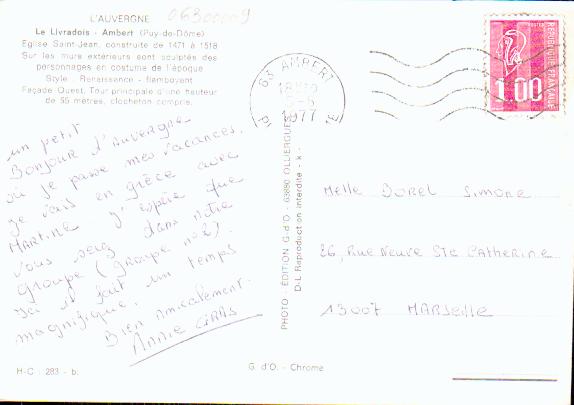 L'AUVERGNE
06300009
Le Livradois - Ambert (Puy-de-Dôme)
Eglise Saint-Jean, construite de 1471 à 1518
Sur les murs extérieurs sont sculptés des
personnages en costume de l'époque
Style : Renaissance - flamboyant
Façade Ouest. Tour principale d'une hauteur
de 55 mètres, clocheton compris.
un petit
Bonjour d'Auvergne
où je passe mes vacances.
je vais en grèce avec
MARTINE j'espère que
vous serez dans notre
groupe (groupe n°2).
Ici il fait un temps
magnifique.
Bien amicalement.
Annie GRAS
H-C : 283 - b.
PHOTO - ÉDITION G. d'O. - 63880 OLLIERGUES
D.-L Reproduction interdite - k -
G. d'O. - Chrome
63 AMBERT
1977
POSTES
REPUBLIQUE FRANCAISE
1.00
Melle DOREL Simone
26, Rue Neuve Ste Catherine
13007 MARSEille